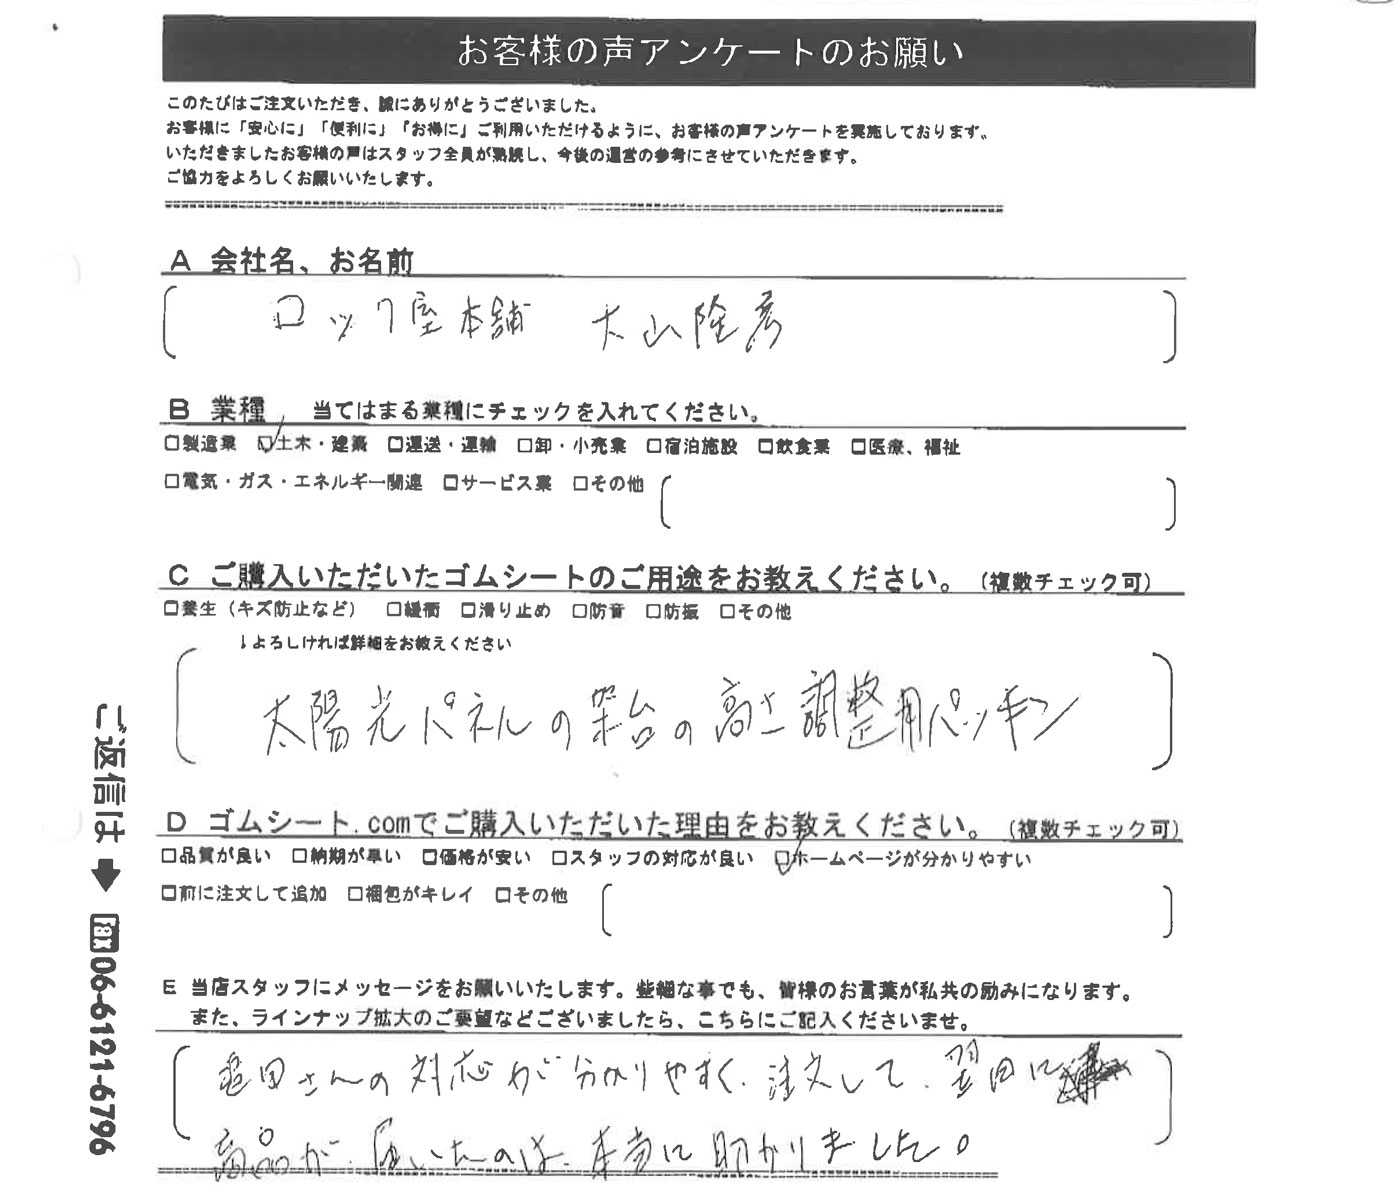 お客様の声アンケートのお願い
このたびはご注文いただき、誠にありがとうございました。
お客様に「安心に」「便利に」「お得に」ご利用いただけるように、お客様の声アンケートを実施しております。
いただきましたお客様の声はスタッフ全員が熟読し、今後の運営の参考にさせていただきます。
ご協力をよろしくお願いいたします。
A 会社名、お名前
ロック屋本舗 大山隆彦
B 業種 当てはまる業種にチェックを入れてください。
□製造業 ☑土木・建築 □運送・運輸 □卸・小売業 □宿泊施設 □飲食業 □医療、福祉
□電気・ガス・エネルギー関連 □サービス業 □その他
C ご購入いただいたゴムシートのご用途をお教えください。(複数チェック可)
□養生(キズ防止など) □緩衝 □滑り止め □防音 □防振 □その他
↓よろしければ詳細をお教えください
太陽光パネルの架台の高さ調整用パッキン
D ゴムシート.comでご購入いただいた理由をお教えください。(複数チェック可)
□品質が良い □納期が早い □価格が安い □スタッフの対応が良い ☑ホームページが分かりやすい
□前に注文して追加 □梱包がキレイ □その他
E 当店スタッフにメッセージをお願いいたします。些細な事でも、皆様のお言葉が私共の励みになります。
また、ラインナップ拡大のご要望などございましたら、こちらにご記入くださいませ。
亀田さんの対応が分かりやすく、注文して、翌日に
商品が、届いたのは、本当に助かりました。
ご返信は➡FAX06-6121-6796